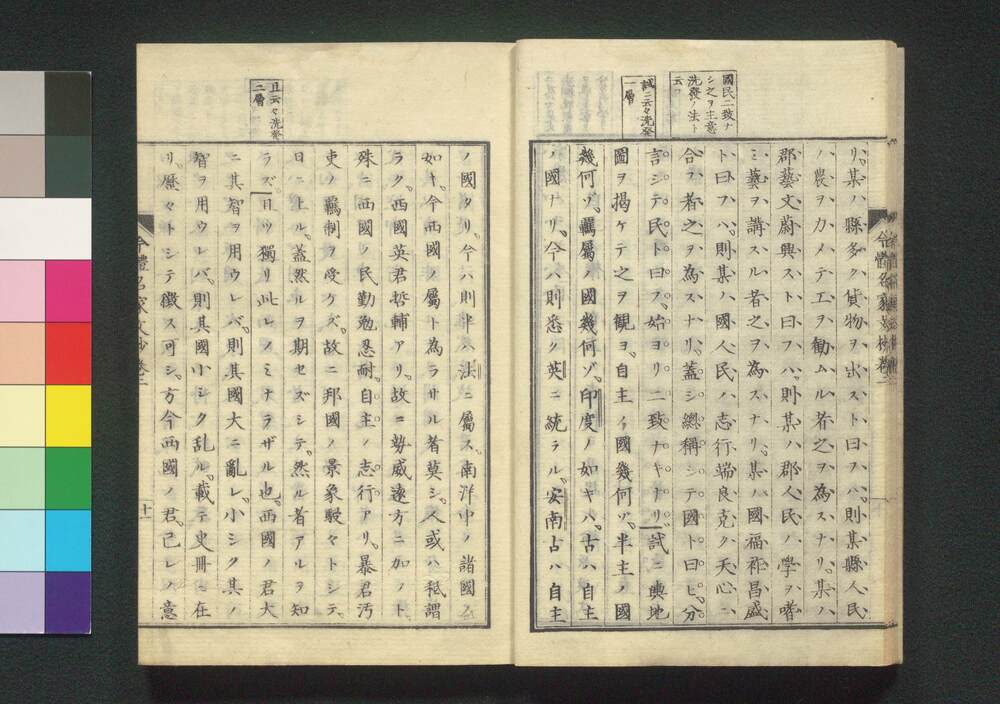 國民二致ナ
シ之ヲ主意
洗發ノ法ト
云フ
試ニ云々洗發
一層
リ、某ハ縣多ク貨物ヲ出スト曰フハ、則某縣人民
ハ、農ヲカメテ工ヲ勸ムル者之ヲ為スナリ、某ハ
郡藝文蔚興スト曰フハ、則某ハ郡人民ノ學ヲ嗜
ミ藝ヲ講スル者之ヲ為スナリ、某ハ國福祚昌盛
ト曰フハ、則某ハ國人民ハ志行端良克ク天心ニ
合フ者之ヲ為スナリ、蓋シ總稱シテ國ト曰ヒ、分
言シテ民ト曰フ、始ヨリ二致ナキナリ、試ニ輿地
圖ヲ揭ケテ之ヲ観ヨ、自主ノ國幾何ゾ、半主ノ國
幾何ゾ、羈屬ノ國幾何ゾ、印度ノ如キハ、古ハ自主
ノ國ナリ、今ハ則悉ク英ニ統ラル、安南占ハ自主
今體名家文抄卷三
且云々洗發
二層
ノ國タリ、今ハ則半ハ法ニ屬ス、南洋中ノ諸國ノ
如キ、今西國ノ屬ト為ラサル者莫シ、人或ハ秪謂
ラク、西國英君哲輔アリ、故ニ勢威遠方ニカノト
殊ニ西國ノ民勤勉忍耐、自主ノ志行アリ、暴君汚
吏ノ羈制ヲ受ケズ、故ニ邦國ノ景象駸々トシテ
日ニ上ル、蓋然ルヲ期セズシテ、然ル者アルヲ知
ラズ、且ツ獨リ此レノミナラザル也、西國ノ君大
ニ其智ヲ用ウレバ、則其國大ニ亂レ、小シク其ノ
智ヲ用ウレバ、則其國小シク乱ル、載テ史冊ニ在
リ、歷々トシテ徵ス可シ、方今西國ノ君、己レノ意
今體名家文抄卷三
十一